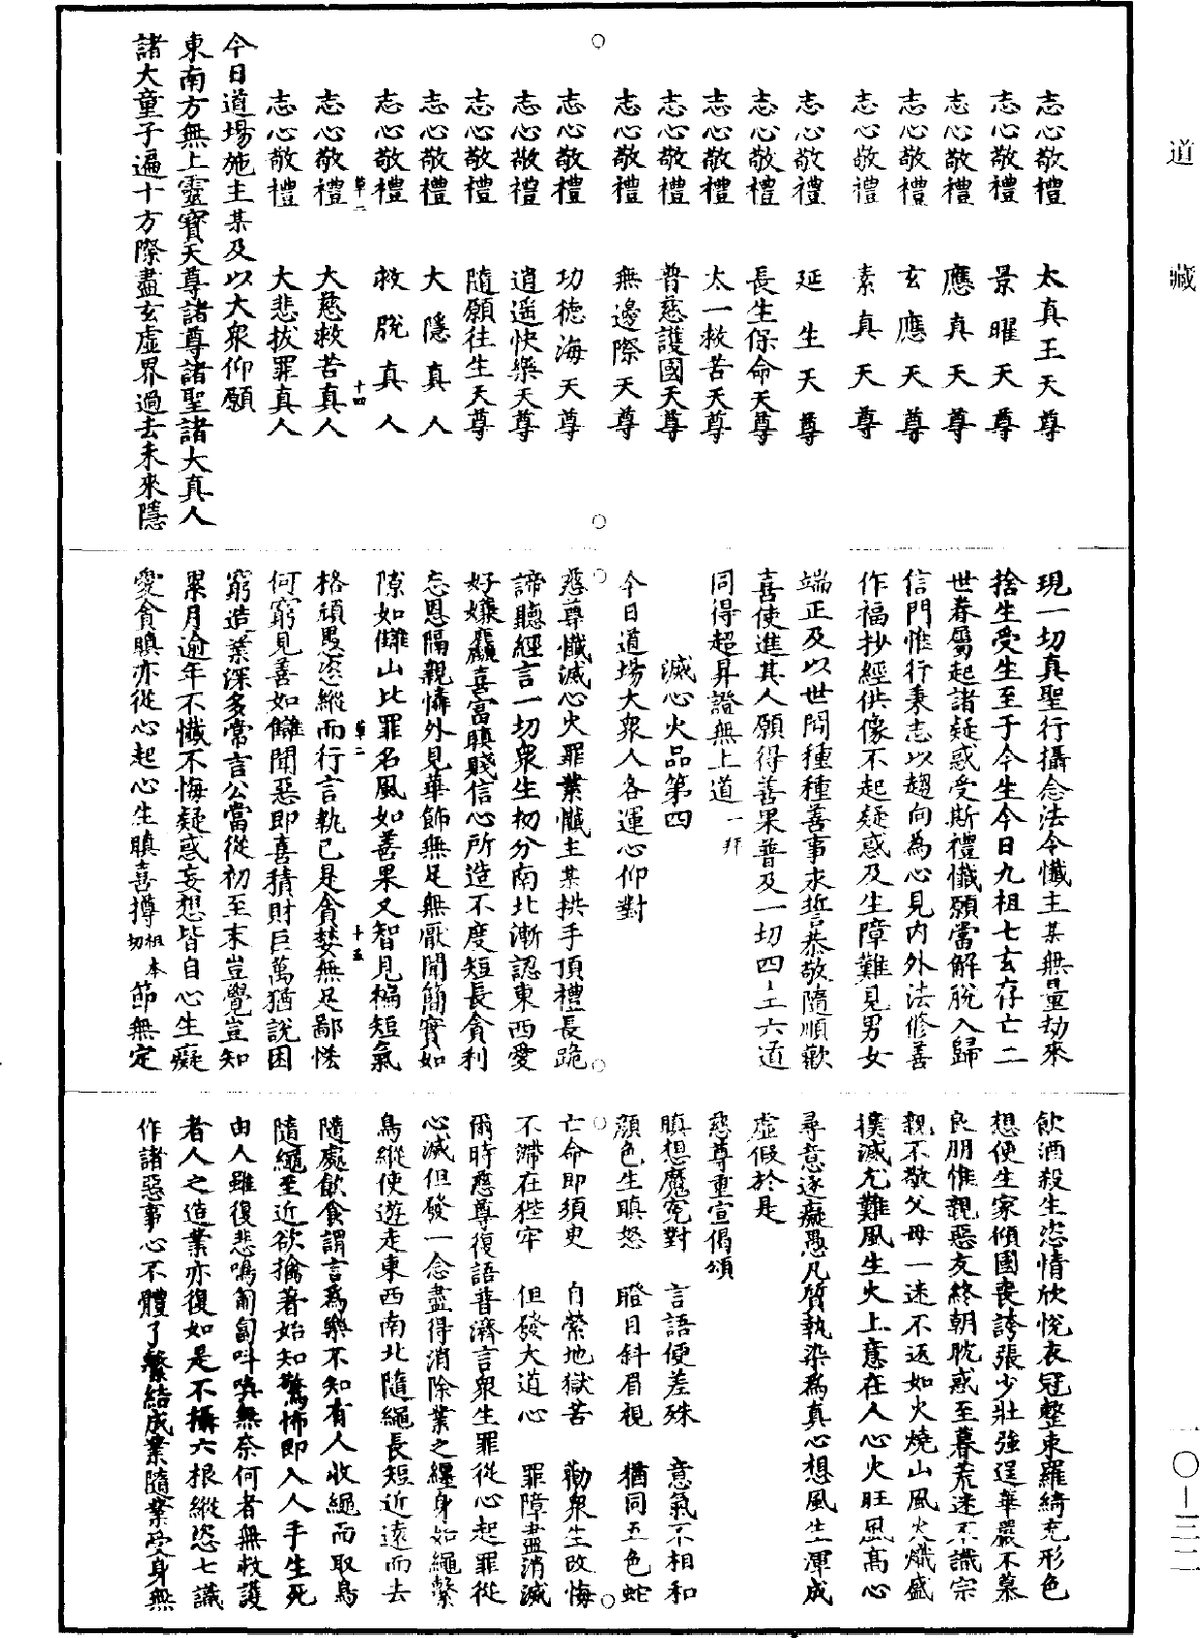 道藏
志心敬禮　太真王天尊
志心敬禮　景曜天尊
志心敬禮　應真天尊
志心敬禮　玄應天尊
志心敬禮　素真天尊
志心敬禮　延生天尊
志心敬禮　長生保命天尊
志心敬禮　太一救苦天尊
志心敬禮　普慈護國天尊
志心敬禮　無邊際天尊
志心敬禮　功德海天尊
志心敬禮　逍遥快樂天尊
志心敬禮　隨願往生天尊
志心敬禮　大隱真人
志心敬禮　救脫真人
草二　十四
志心敬禮　大慈救苦真人
志心敬禮　大悲拔罪真人
今日道場施主某及以大衆仰願
東南方無上靈寳天尊諸尊諸聖諸大真人
諸大童子遍十方際盡玄虛界過去未來隱
現一切真聖行攝念法令懺主某無量劫來
捨生受生至于今生今日九祖七玄存亡二
世眷屬起諸疑惑受斯禮懺願當解脫入歸
信門惟行秉志以趨向為心見内外法修善
作福抄經供像不起疑惑及生障難見男女
端正及以世間種種善事求哲言恭敬隨順歡
喜使進其人願得善果普及一切四土六道
同得超昇證無上道一拜
滅心火品第四
今日道場大衆人各運心仰對
慈尊懺滅心火罪業懺主某拱手頂禮長跪
諦聽經言一切衆生初分南北漸認東西愛
好嫌麤喜富瞋賤信心所造不度短長貪利
忘恩隔親憐外見華飾無足無厭聞簡實如
隙如讎山比罪名風如善果又智見褊短氣
草二　十五
格頑愚恣縱而行言執己是貪婪無足鄙恡
何窮見善如讎聞惡即喜積財巨萬猶說困
窮造業深多常言公當從初至末豈覺豈知
累月逾年不懺不悔疑惑妄想皆自心生癡
愛貪瞋亦從心起心生瞋喜撙祖本切節無定
飲酒殺生恣情欣悅衣冠整束羅綺充形色
想使生家傾國喪誇張少壯強逞華嚴不慕
良朋惟親惡友終朝躭惑至暮荒迷不識宗
親不敬父母一迷不返如火燒山風火熾盛
撲滅尤難風生火上意在人心火旺風高心
尋意逐癡愚凡質執染為真心想風生渾成
虛假於是
慈尊重宣偈頌
瞋想魔寃對　言語便差殊　意氣不相和
顔色生瞋怒　瞪目斜眉視　猶同五色蛇
亡命即須臾　自縈地獄苦　勸衆生改悔
不滯在狴牢　但發大道心　罪障盡消滅
爾時慈尊復語普濟言衆生罪從心起罪從
心滅但發一念盡得消除業之纏身如繩繫
鳥縱使遊走東西南北隨繩長短近遠而去
隨處飲食謂言為樂不知有人收繩而取鳥
隨繩至近欲擒著始知驚怖即入人手生死
由人雖復悲鳴匍匐呌喚無奈何者無救護
者人之造業亦復如是不攝六根縱恣七識
作諸惡事心不體了繫結成業隨業受身無
一〇—三一二